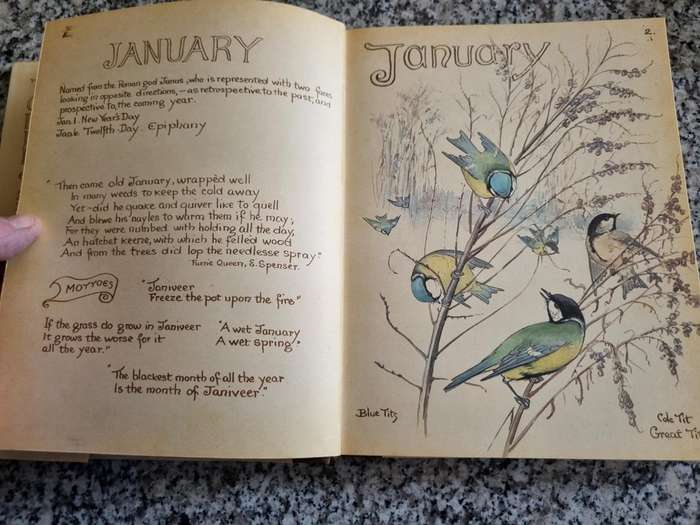 2.
JANUARY
Named from the Roman god Janus, who is represented with two faces
looking in opposite directions, — as retrospective to the past, and
prospective to, the coming year.
Jan 1. New Year's Day
Jan 6. Twelfth-Day. Epiphany
"Then came old January, wrappèd well
In many weeds to keep the cold away
Yet did he quake and quiver like to quell
And blowe his nayles to warm them if he may;
For they were numbed with holding all the day,
An hatchet keene, with which he felled wood
And from the trees did lop the needlesse spray."
Faerie Queen, S. Spenser.
MOTTOES
"Janiveer
Freeze the pot upon the fire"
If the grass do grow in Janiveer
It grows the worse for it
all the year."
"A wet January
A wet spring."
"The blackest month of all the year
Is the month of Janiveer".
2.
January
Blue Tits
Cole Tit
Great Tit